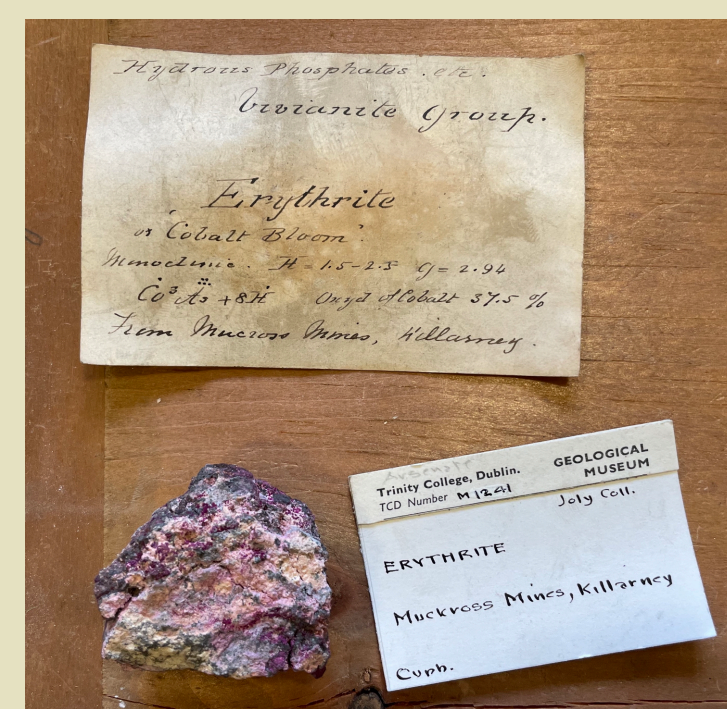 Hydrous Phosphates. etc.
Vivianite Group.
Erythrite
or 'Cobalt Bloom'.
Monoclinic. H = 1.5-2.5 G = 2.94
Co³ As + 8H Oxyd of Cobalt 37.5 %
From Mucross Mines, Killarney.
Arsenate
Trinity College, Dublin.
GEOLOGICAL
MUSEUM
TCD Number M1241
Joly Coll.
ERYTHRITE
Muckross Mines, Killarney
Cupb.